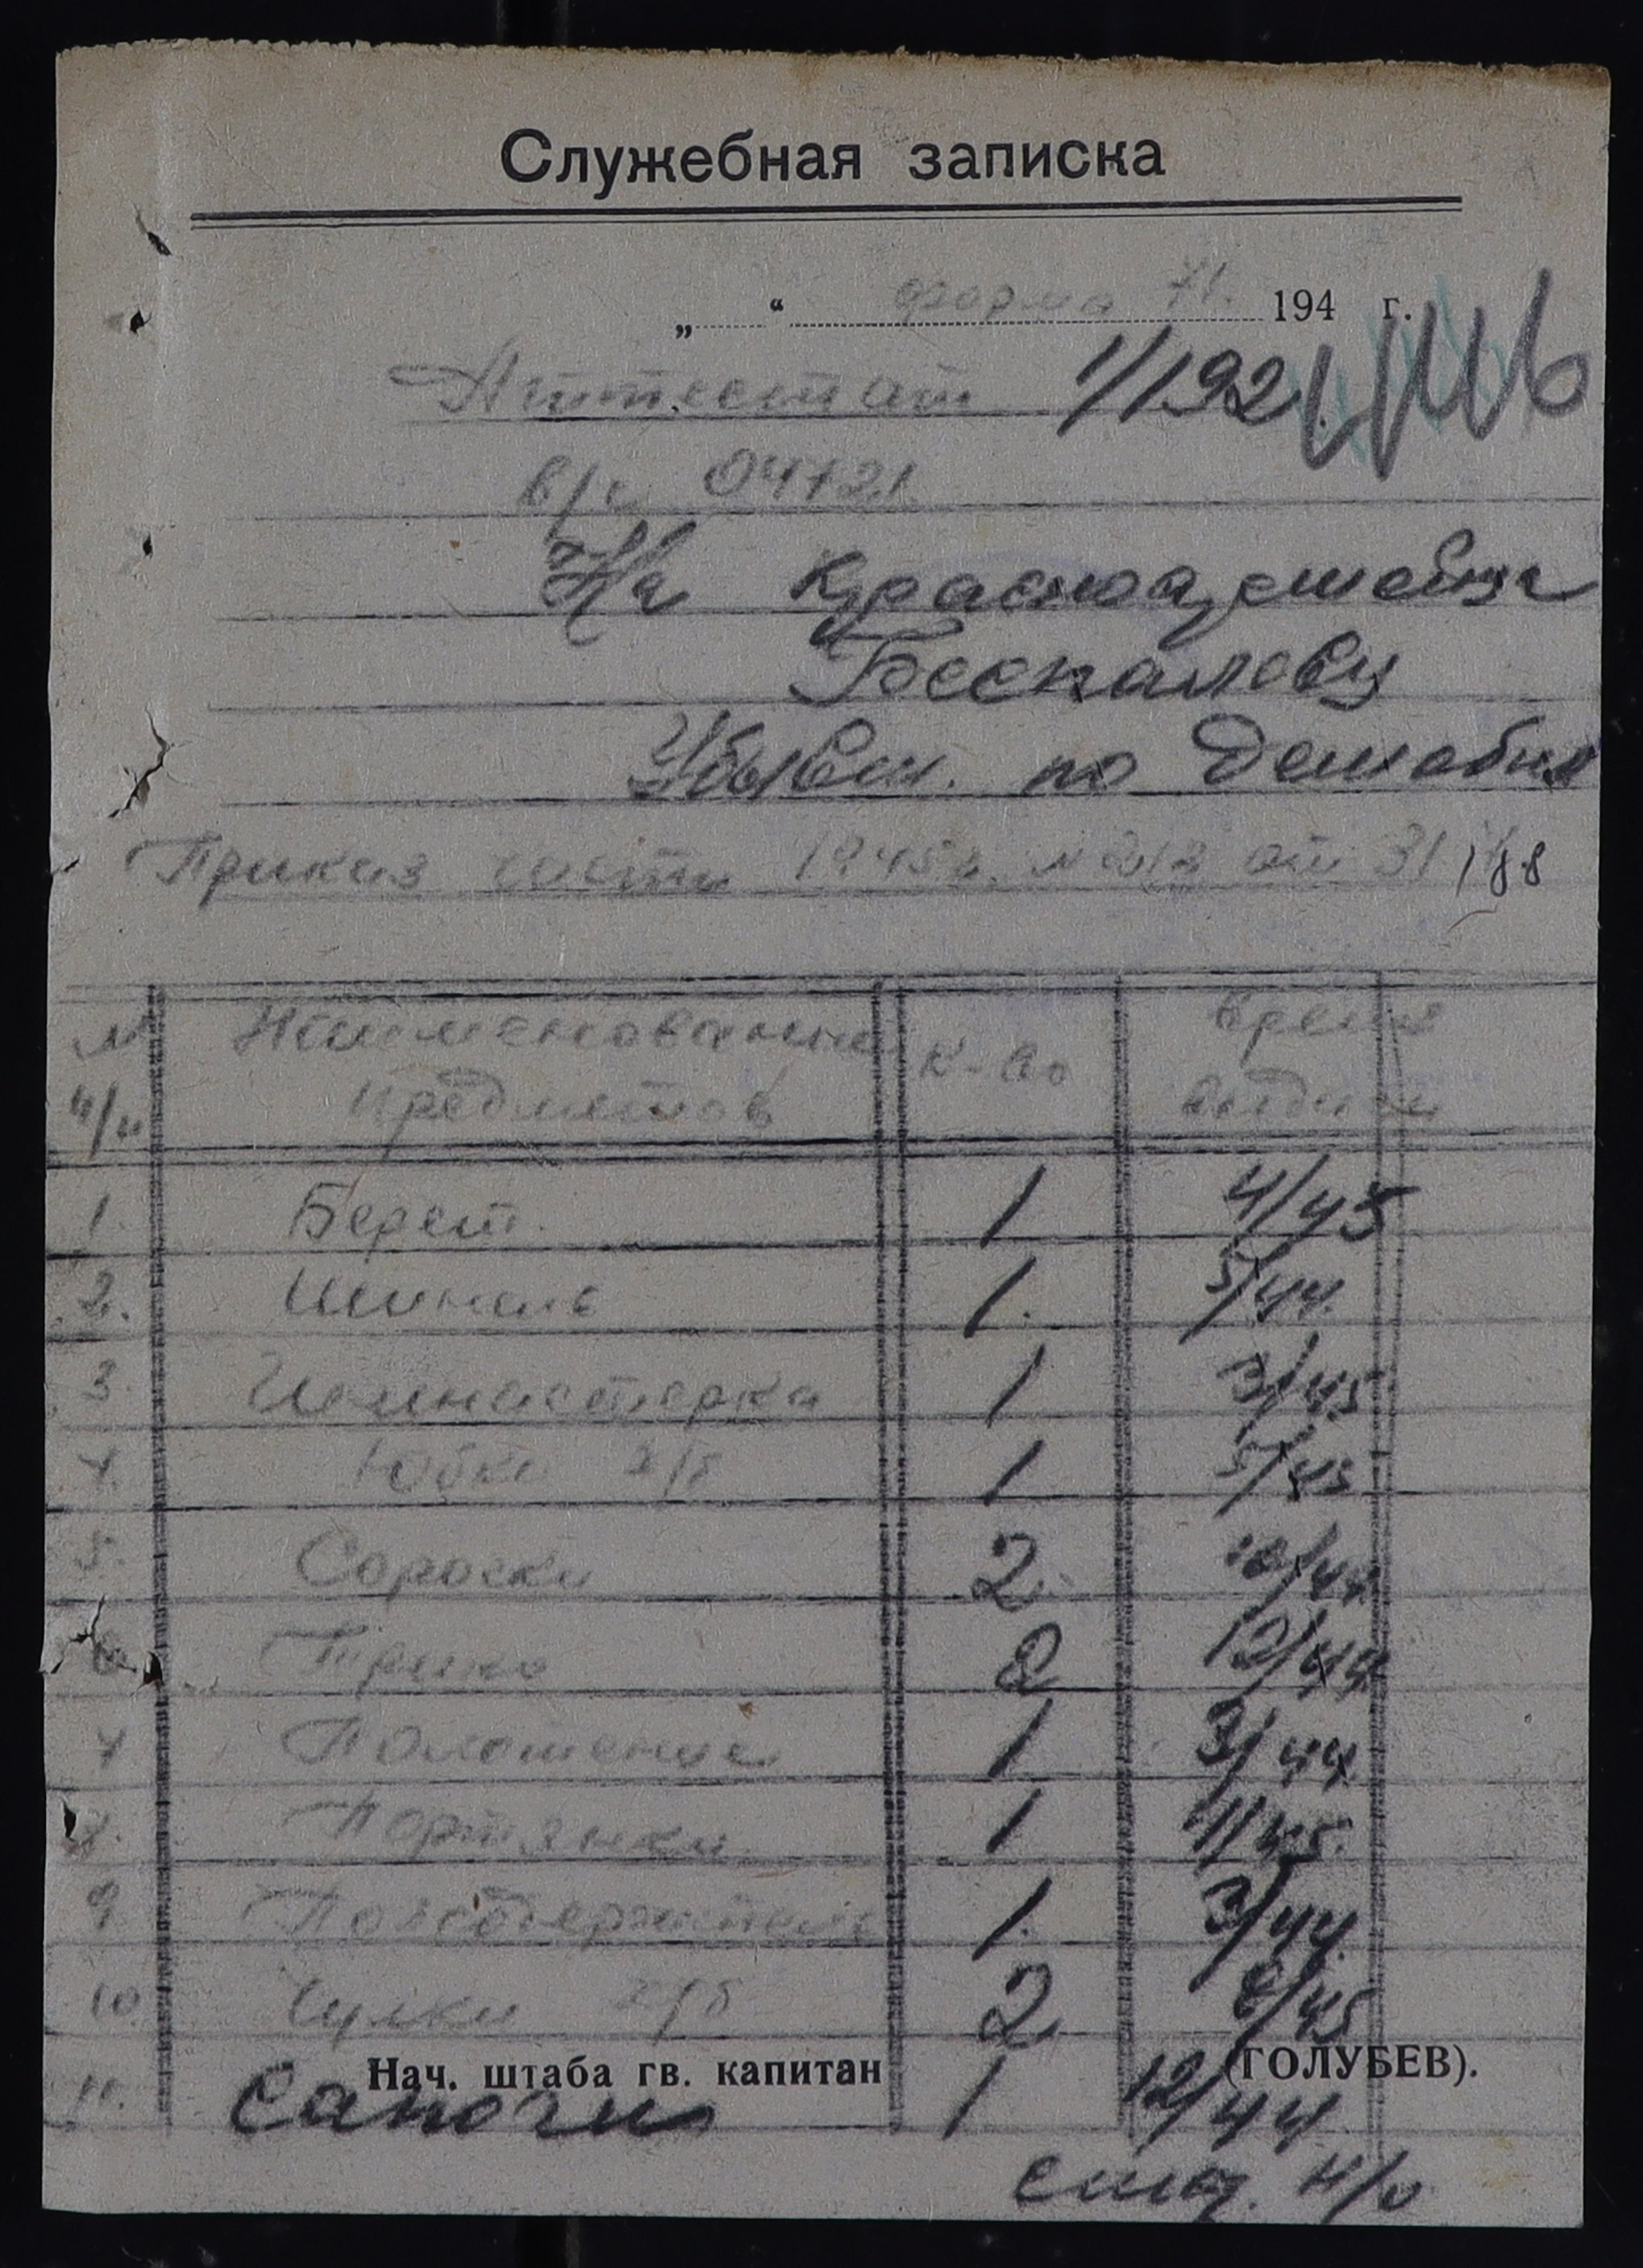 Служебная записка
„ “ форма 71. 194 г.
Аттестат 1/192
в/ч 04721
На красноармейца
Беспалову
Убывш. по демобил
Приказ части 1945г. № 212 от 31
№ п/п Наименование предметов к-во Время выдачи
1. Берет. 1 4/45
2. Шинель 1. 5/44.
3. Гимнастерка 1 3/45
4. Юбка х/б 1 5/45
5. Сорочки 2 10/44
6. Трико 2 12/44
7 Полотенце 1 3/44
8. Портянки 1 1/45.
9 Поясодержатель 1. 3/44.
10. Чулки х/б 2 6/45
Нач. штаба гв. капитан (ГОЛУБЕВ).
11. Сапоги 1 12/44